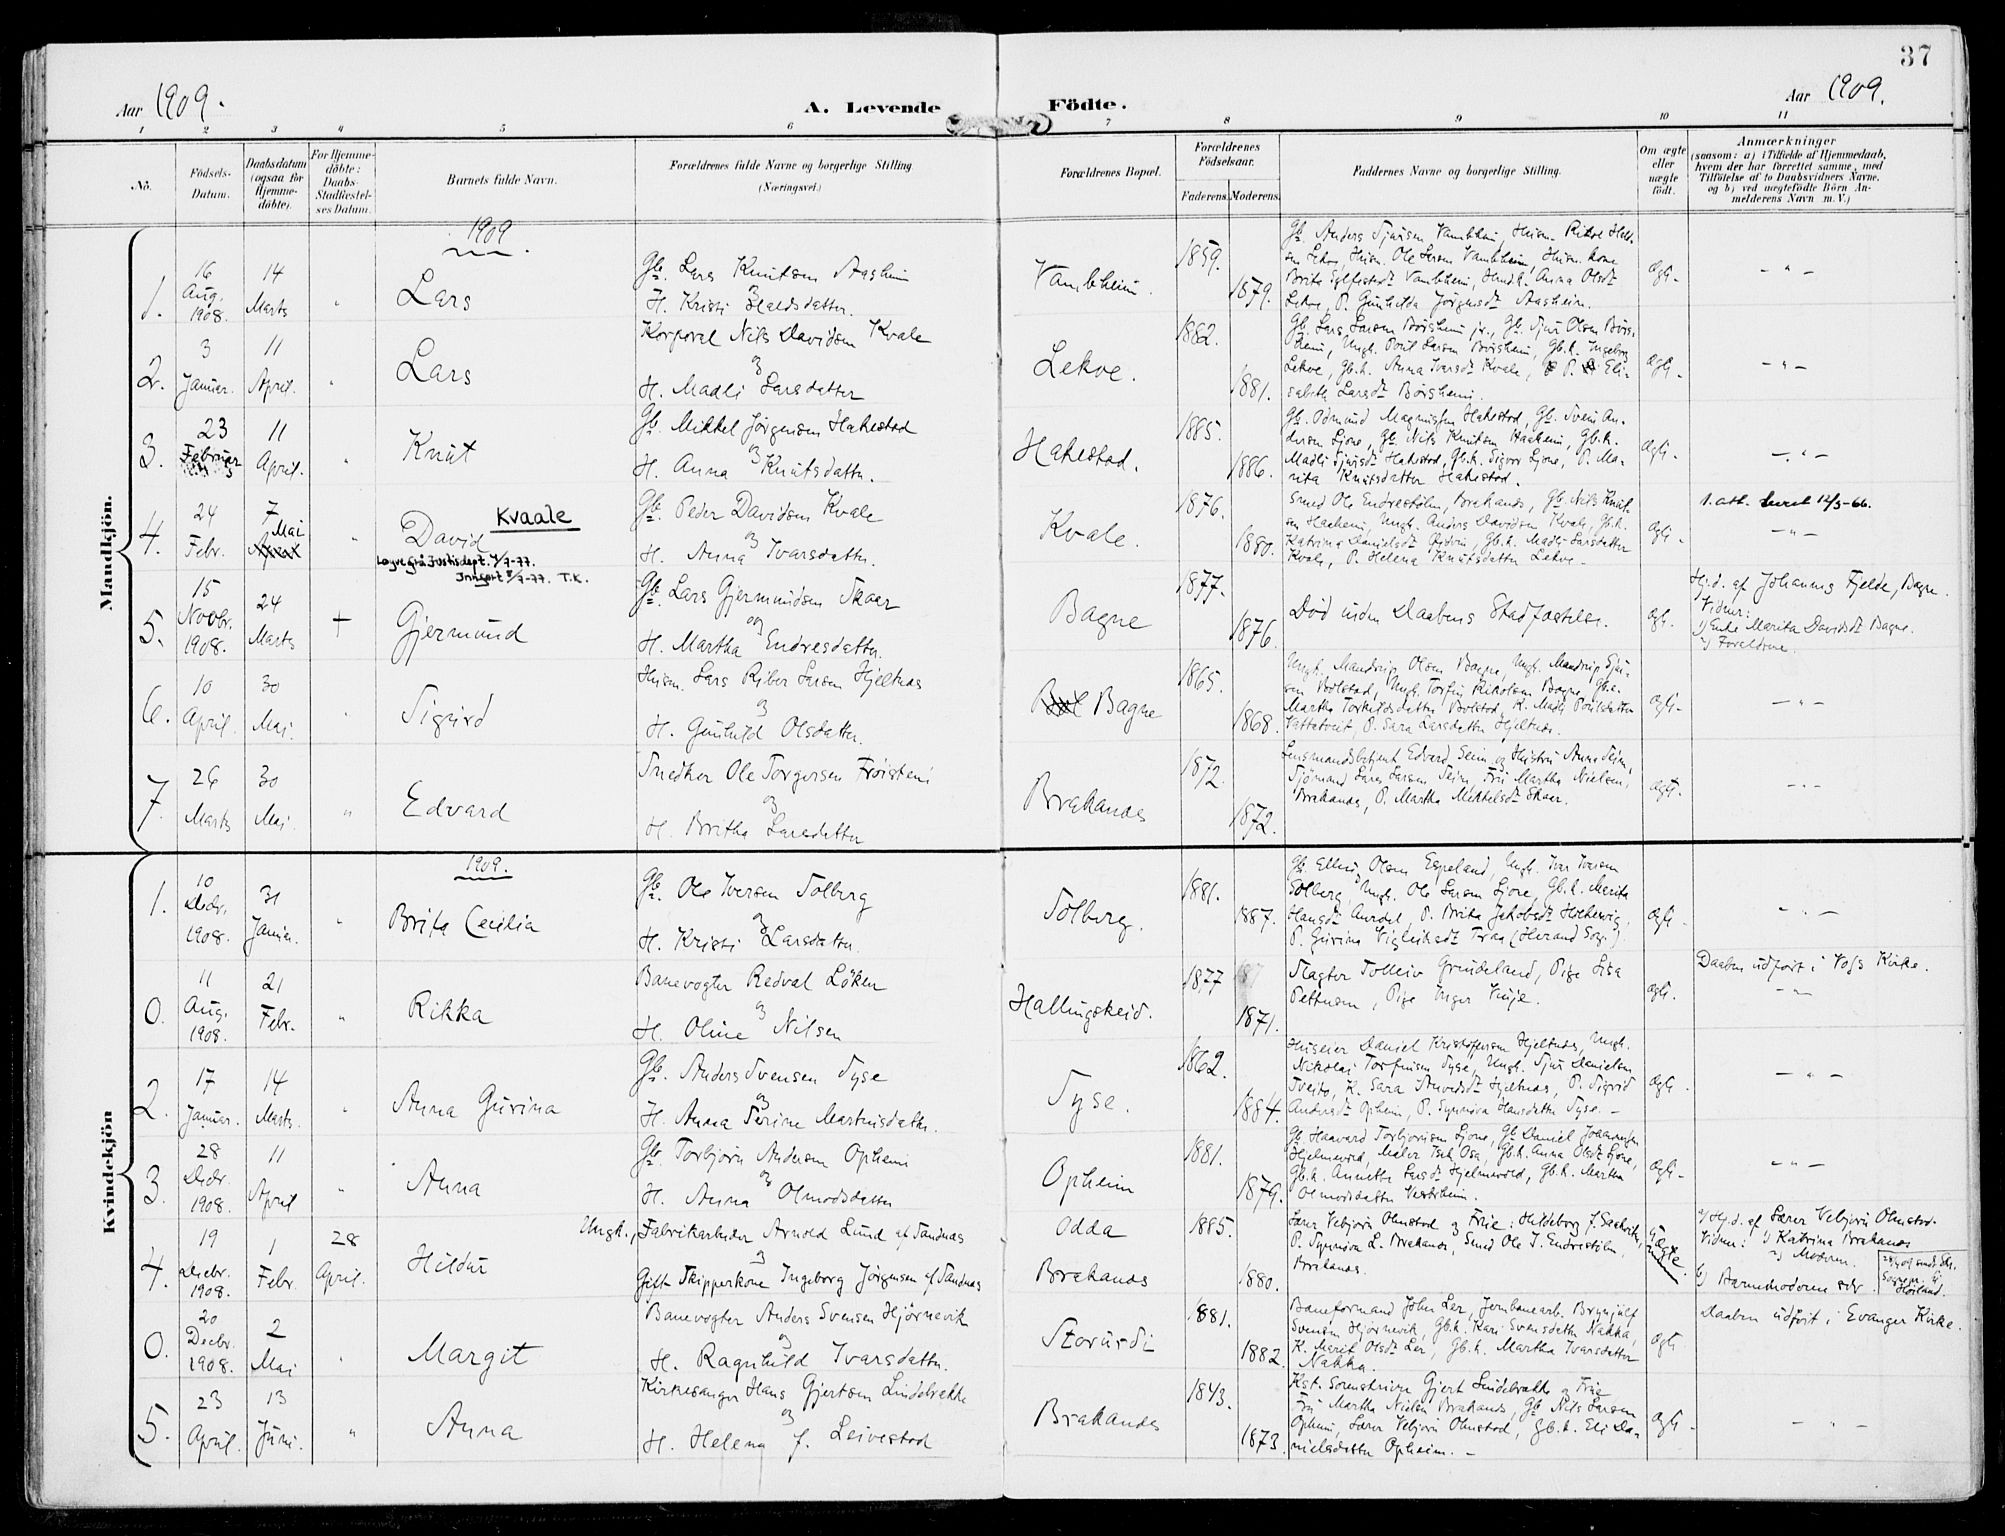 37
Aar 1909.
A. Levende Födte.
Aar 1909.
1 2 3 4 5 6 7 8 9 10 11
No.
Födsels-Datum.
Daabsdatum (ogsaa for Hjemme-döbte).
For Hjemme-döbte: Daabs-Stadfæstel-ses Datum.
Barnets fulde Navn.
Forældrenes fulde Navne og borgerlige Stilling (Næringsvei.)
Forældrenes Bopæl.
Forældrenes Födselsaar.
Faderens. Moderens.
Faddernes Navne og borgerlige Stilling.
Om ægte eller uægte födt.
Anmærkninger
(saasom: a) i Tilfælde af Hjemmedaab,
hvem der har forrettet samme, med
Tilföielse af to Daabsvidners Navne,
og b) ved uægtefödte Börn An-
melderens Navn m. V.)
Mandkjön.
1909
1. 16 Aug. 1908. 14 Marts " Lars
Gb. Lars Knutson Aasheim
og
H. Kristi Haldsdatter.
Vambheim. 1859. 1879.
Gb. Anders Sjursen Vambheim, Husm.
Lekve, Husm. Ole Larsen Vambheim, Husm. kone
Brita Vambheim, Anna Olsdt
Lekve, P. Gunhilda Jørgensdt Aasheim.
Ægt. - " -
2. 3 Januar. 11 April. " Lars
Korporal Nils Davidson Kvale
og
H. Madli Larsdatter
Lekve. 1882. 1881.
Gb. Lars Larsen Børsheim jr., Gb. Sjur Olsen Børs-
heim, Ungk. Poul Larsen Børsheim, Gb.k. Ingeborg
Lekve, Gb.k. Anna Ivarsdt Kvale, P. Eli-
sabeth Larsdt Børsheim.
Ægt. - " -
3. 23 Februar 11 April. " Knut
Gb. Mikkel Jørgensen Hakestad
og
H. Anna Knutsdatter.
Hakestad. 1885. 1886.
Gb. Odmund Magnussen Hakestad, Gb. Svein An-
dersen Ljone, Gb. Nils Knutsen Haaheim, Gb.k.
Madli Sjursdt Hakestad, Gb.k. Sigvor Ljone, P. Ma-
rita Knutsdatter Hakestad.
Ægt. - " -
4. 24 Febr. 7 Mai " David Kvaale
Løyve frå Justisdept. 4/7-77.
Inngort 8/7-77. T.K.
Gb. Peder Davidsen Kvale
og
H. Anna Ivarsdatter.
Kvale. 1876. 1880.
Smed Ole Endresthølm, Brakanes, Gb. Nils Knut-
sen Haaheim, Ungk. Anders Davidsen Kvale, Gb.k.
Katrina Danielsdt, Gb.k. Madli Larsdatter
Kvale, P. Helena Knutsdatter Lekve.
Ægt. 1. att. 12/5-66.
- " -
5. 15 Novbr. 1908. 24 Marts + Gjermund
Gb. Lars Gjermundsen Skaar
og
H. Martha Endresdatter.
Bagne 1877. 1876.
Død inden Daabens Stadfæstelse.
Ægt.
Hj.d. af Johannes Fjelde, Bagne.
Vidner:
1) Enke Marita Davidsdt Bagne.
2) Forældrene.
6. 10 April. 30 Mai. " Sigurd
Husm. Lars Riber Larsen Hjeltnes
og
H. Gunhild Olsdatter.
Bagne 1865. 1868.
Ungk. Mandrup Olsen Bagne, Ungk. Mandrup Sju-
sen Bolstad, Ungk. Torfin Nikolsen Bagne, Gb.e.
Martha Torkildsdatter Bolstad, K. Madli Poulsdatter
Vattatveit, P. Sara Larsdatter Hjeltnes.
Ægt. - " -
7. 26 Marts 30 Mai. " Edvard
Snedker Ole Torgersen Frøisteni
og
H. Britha Larsdatter
Brakanes 1872. 1872.
Lensmandsbetjent Edvard Seim og Hustru Anna Seim,
Sjømand Lars Larsen Seim, Fru Martha Nielsen,
Brakanes, P. Martha Mikkelsdt Skaar.
Ægt. - " -
Kvindekjön
1909.
1. 10 Decbr. 1908. 31 Januar. " Brita Cecilia
Gb. Ole Iversen Solberg
og
H. Kristi Larsdatter.
Solberg. 1881. 1887.
Gb. Elling Olsen Espeland, Ungk. Ivar Iversen
Solberg, Ungk. Ole Larsen Ljone, Gb.k. Marita
Hansdt Aurdal, P. Brita Jakobsdt
P. Gurina Vigleiksdt Traa (Herand Sogn).
Ægt. - " -
0. 11 Aug. 1908. 21 Febr. " Rikka
Banevogter Redval Løken
og
H. Oline Nilsen
Hallingskeid. 1877 1871.
Slagter Tolleiv Grudeland, Pige Lisa
Pettersen, Pige Inger Vinje.
Ægt. Daaben udført i Voss Kirke.
- " -
2. 17 Januar. 14 Marts. " Anna Gurina
Gb. Anders Svensen Syse
og
H. Anna Serine Martinsdatter.
Syse. 1862. 1884.
Huseier Daniel Kristoffersen Hjeltnes, Ungk.
Nikolai Torfinsen Syse, Ungk. Sjur Danielsen
Tveito, K. Sara Hjeltnes, P. Sigrid
Andersdt Opheim, P. Synnøva Hansdatter Syse. -
Ægt. - " -
3. 28 Decbr. 1908. 11 April " Anna
Gb. Torbjørn Andersen Opheim
og
H. Anna Olmodsdatter
Opheim 1881. 1879.
Gb. Haavard Torbjørnsen Ljone, Gb. Daniel Johannesen
Hjelmevold, Maler Osa, Gb.k. Anna Olsdt Ljone,
Gb.k. Annetta Larsdt Hjelmevold, Gb.k. Martha
Olmodsdatter Vestrheim.
Ægt. - " -
4. 19 Decbr. 1908. 1 Febr. 28 April. Hildur
Ungk., Fabrikarbeider Arnold Lund af Sandnes
og
Gift Skipperkone Ingeborg Jørgensen af Sandnes
Odda Brakanes 1885. 1880.
Lærer Vebjørn Olmstad og Frue: Hildeborg J. Saakvitne,
P. Synnøva L. Brakanes, Smed Ole T. Endresthølm,
Brakanes.
Uægte.
a) Hj.d. af Lærer Vebjørn Olmstad.
Vidner: 1) Katrina Brakanes
2) Moderen.
b) Barnemoderen selv.
0. 20 Decbr. 1908. 2 Mai " Margit
Banevogter Anders Svensen Hjørnevik
og
H. Ragnhild Ivarsdatter.
Storurdi 1881. 1882.
Baneformand John Lær, Jernbanearb. Brynjulf
Svensen Hjørnevik, Gb.k. Kari Svensdatter Nakka,
K. Marit Olsdt Lær, Gb.k. Martha Ivarsdatter
Nakka.
Ægt. Daaben udført i Evanger Kirke.
5. 23 April. 13 Juni. " Anna
Kirkesanger Hans Gjertsen Lindebrække
og
H. Helena J. Leivestad
Brakanes 1843. 1873.
Kst. Sorenskriver Gjert Lindebrække og Frue
Fru Martha Nielsen Brakanes, Gb. Nils Larsen
Opheim, Lærer Vebjørn Olmstad, Gb.k. Eli Da-
nielsdatter Opheim. -
Ægt. - " -